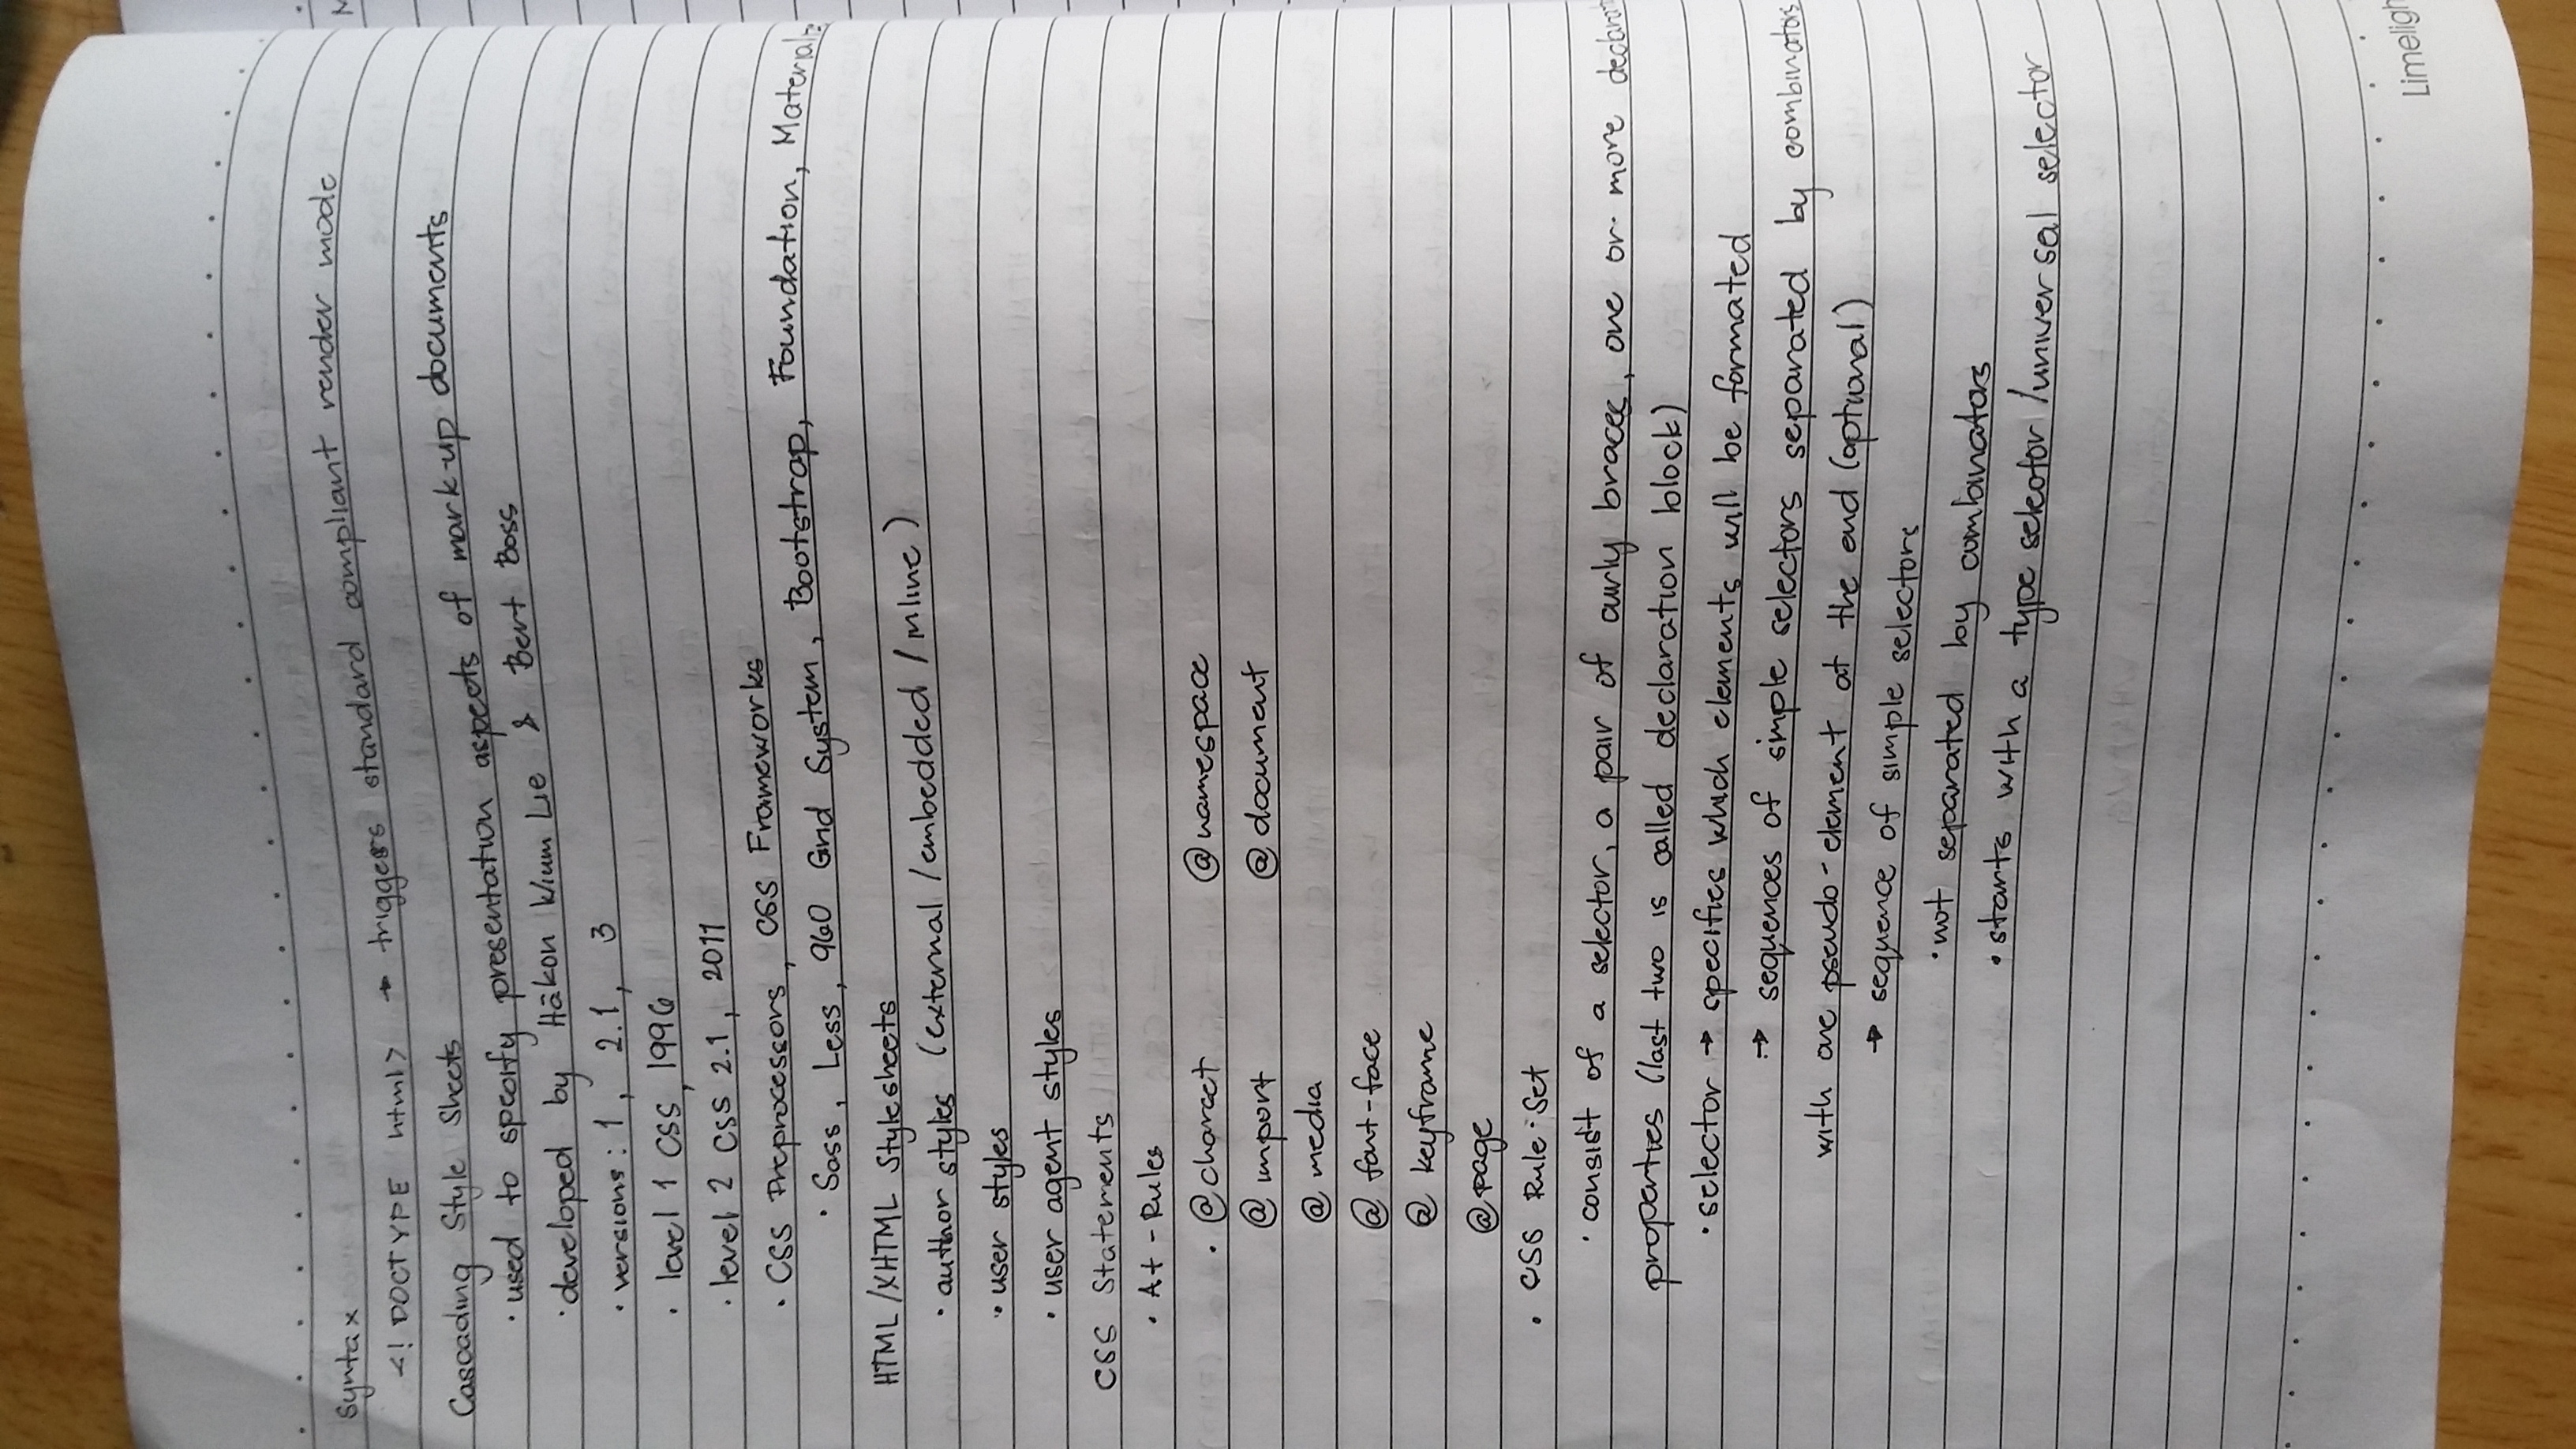 Syntax
<! DOCTYPE html> → triggers standard compliant render mode
Cascading Style Sheets
· used to specify presentation aspects of mark-up documents
· developed by Håkon Wium Lie & Bert Boss
· versions: 1, 2.1, 3
· level 1 CSS, 1996
· level 2 CSS 2.1, 2011
· CSS Preprocessors, CSS Frameworks
· Sass, Less, 960 Grid System, Bootstrap, Foundation, Materialize
HTML/XHTML Stylesheets
· author styles (external / embedded / inline)
· user styles
· user agent styles
CSS Statements
· At-Rules
· @charset @namespace
@ import @ document
@ media
@ font-face
@ keyframe
@page
· CSS Rule-Set
· consist of a selector, a pair of curly braces, one or more
properties (last two is called declaration block)
· selector → specifies which elements will be formated
→ sequences of simple selectors separated by combinators
with one pseudo-element at the end (optional)
→ sequence of simple selectors
· not separated by combinators
· starts with a type selector /universal selector